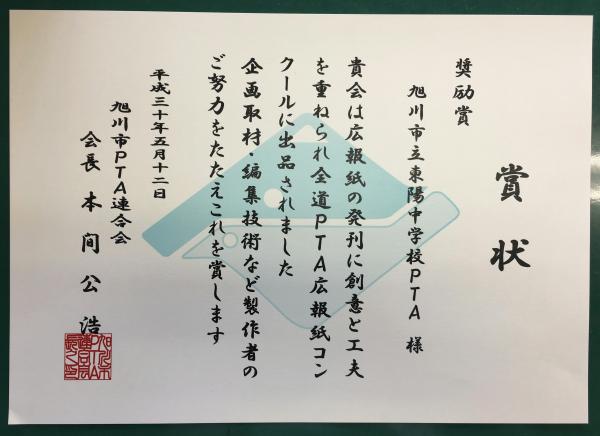 賞状
奨励賞
旭川市立東陽中学校PTA 様
貴会は広報紙の発刊に創意と工夫
を重ねられ全道PTA広報紙コン
クールに出品されました
企画取材・編集技術など製作者の
ご努力をたたえこれを賞します
平成三十年五月十二日
旭川市PTA連合会
会長 本間公浩